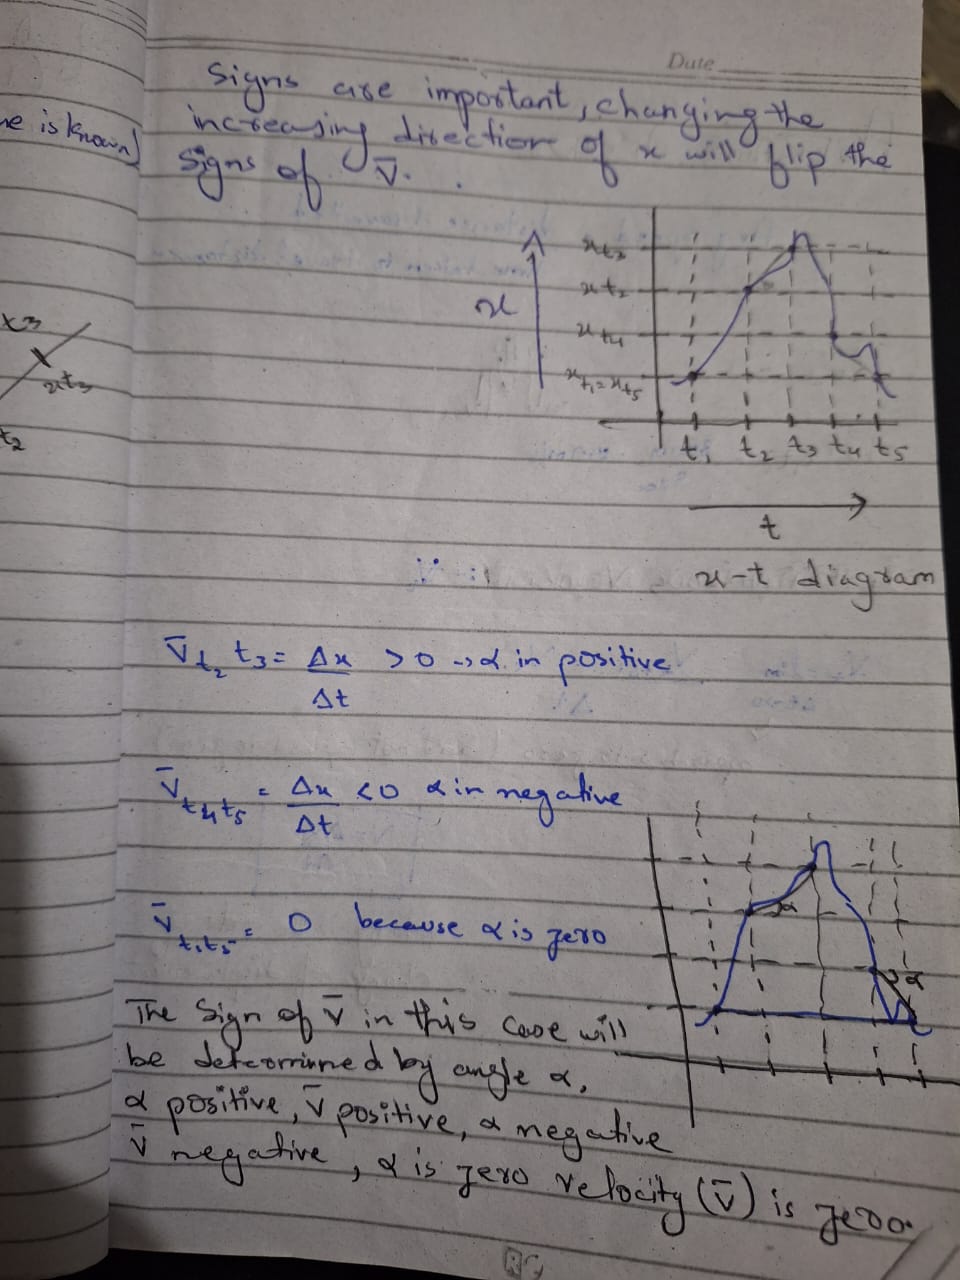 Date
Signs are important, changing the
increasing direction of x will flip the
signs of v̄.
ne is known)
x
xt₃
xt₂
xt₄
xt₁=xt₅
t₁ t₂ t₃ t₄ t₅
t
x-t diagram
x3
xt₃
t₂
V̄t₂t₃ = Δx/Δt >0 → α in positive
V̄t₄t₅ = Δx/Δt <0 α in negative
V̄t₁t₅ = 0 because α is zero
α
α
The sign of v̄ in this case will
be determined by angle α,
α positive, v̄ positive, α negative
v̄ negative, α is zero velocity (v̄) is zero.